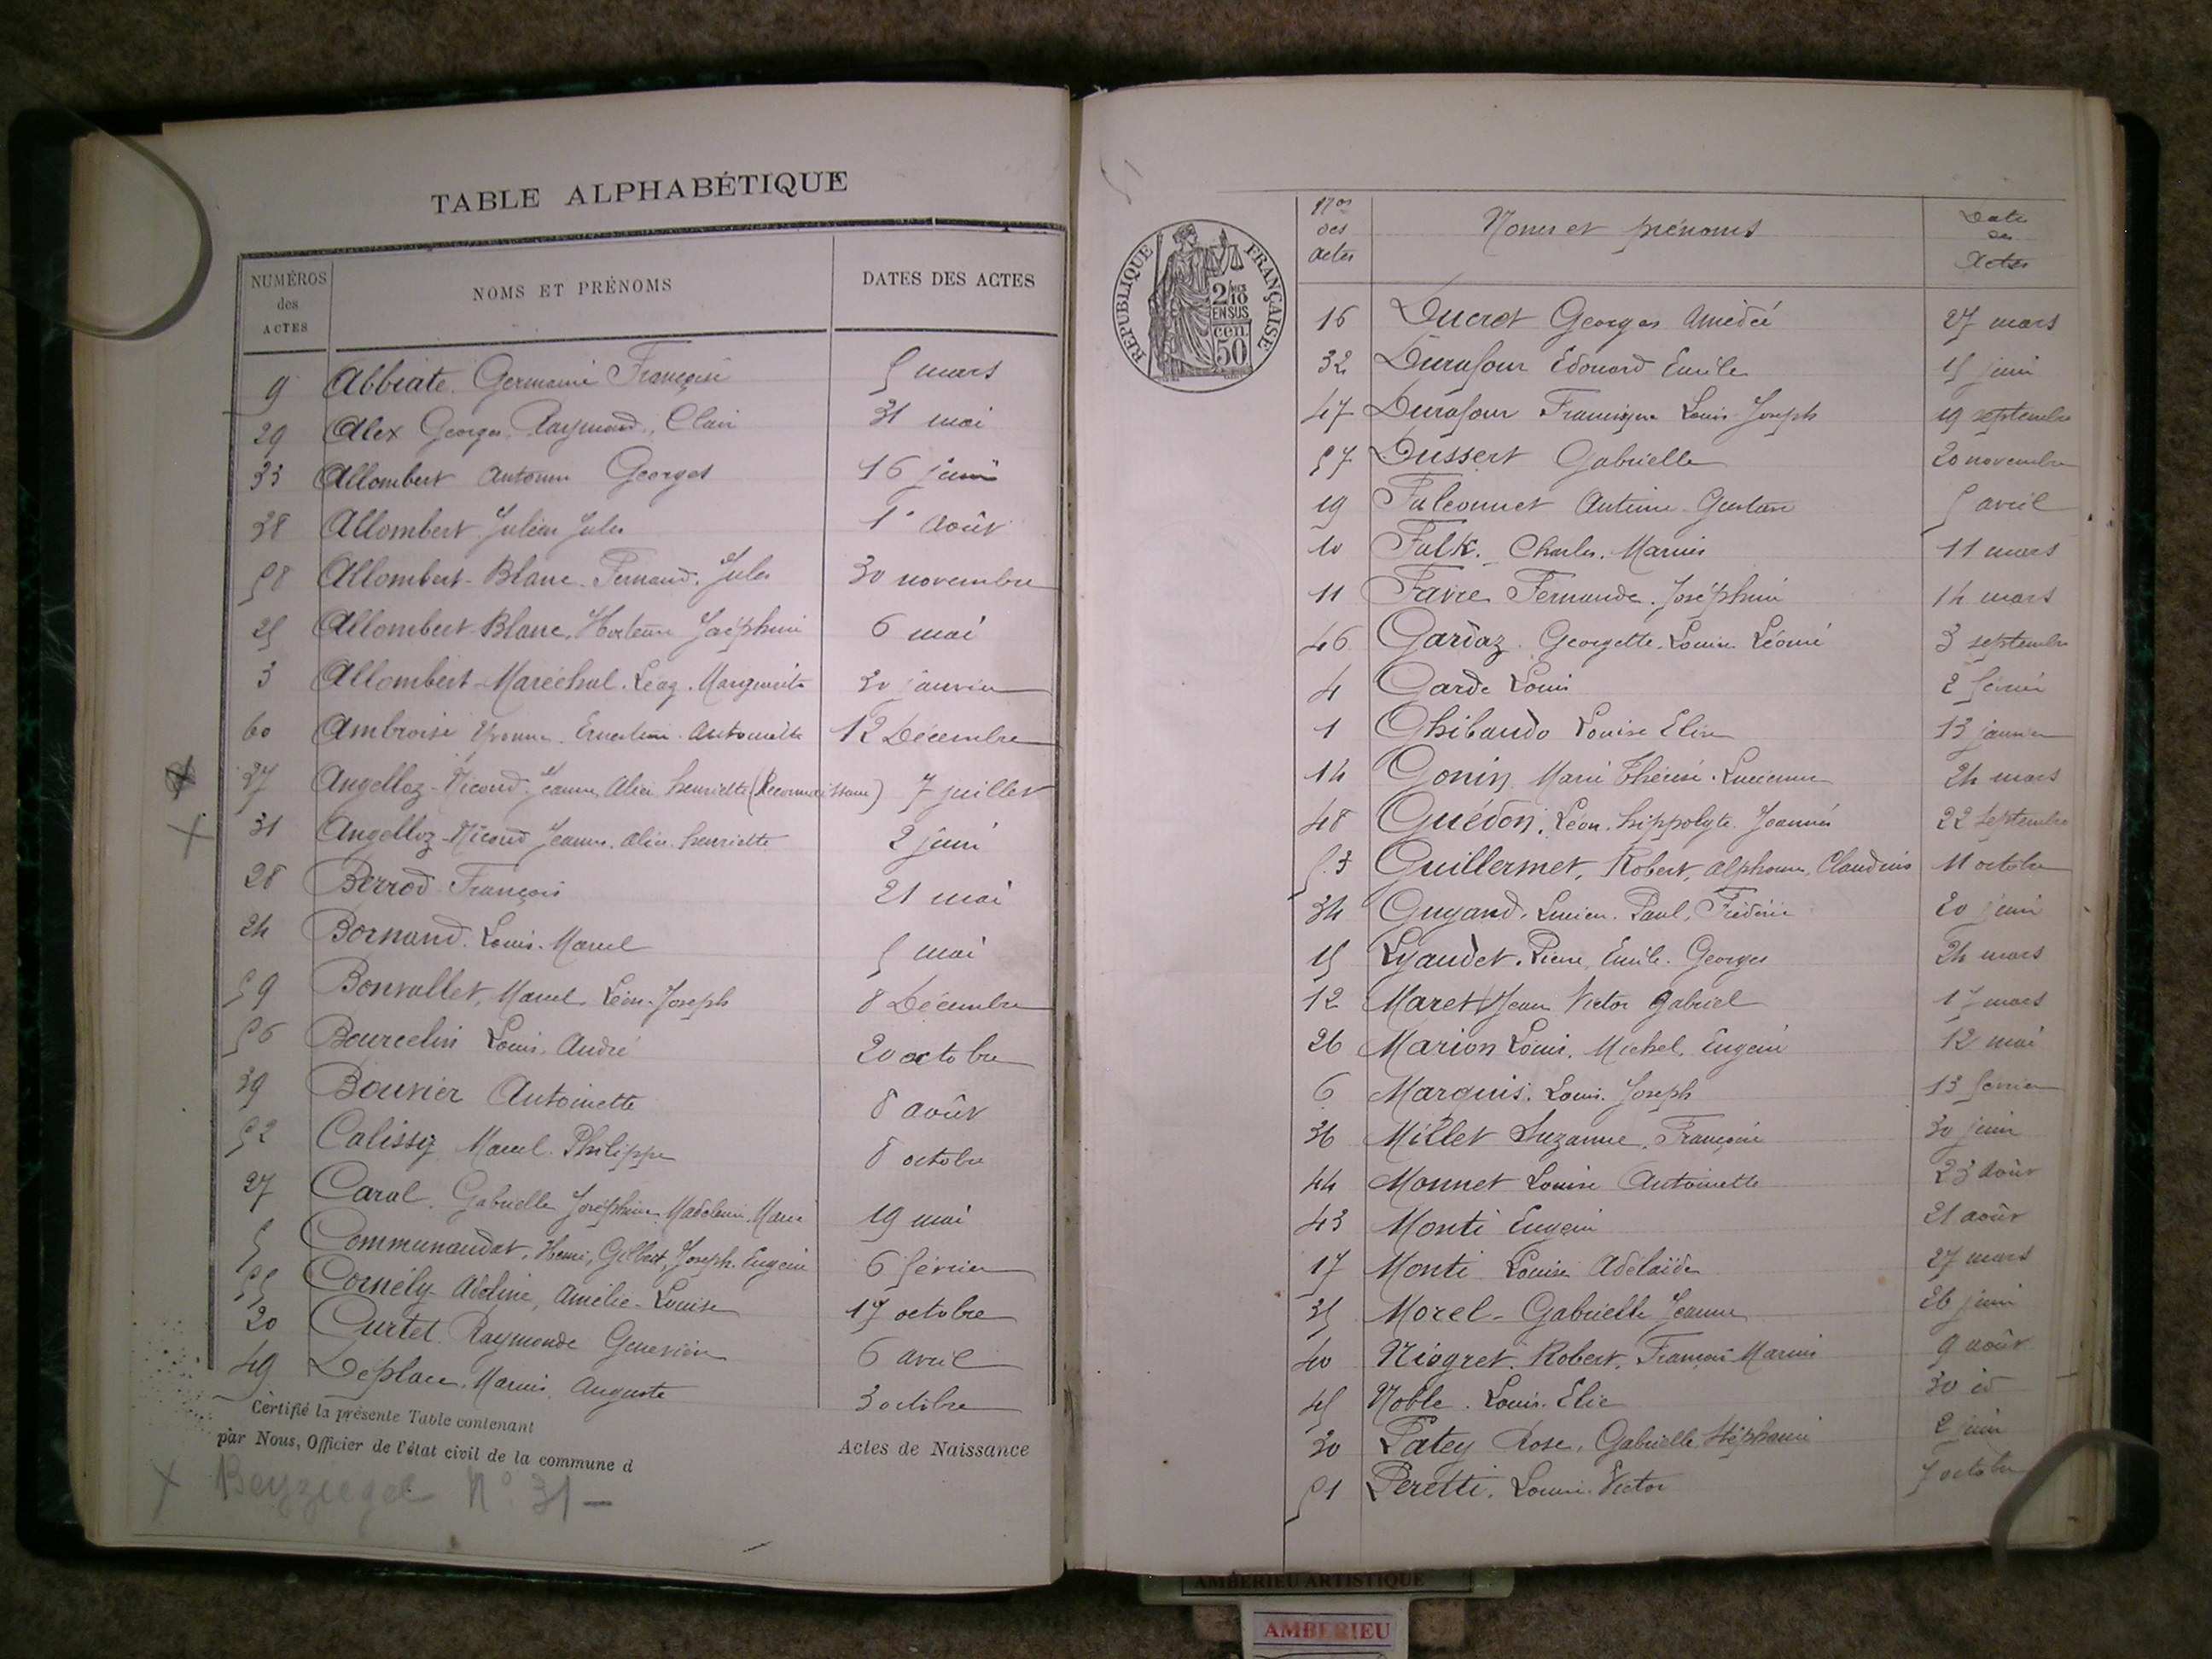 TABLE ALPHABÉTIQUE
NUMÉROS des ACTES NOMS ET PRÉNOMS DATES DES ACTES
9 Abbiate Germaine Françoise 5 mars
29 Alex Georges, Raymond, Clair 31 mai
33 Allombert Antonin Georges 16 juin
38 Allombert Julien Jules 1er août
58 Allombert-Blanc Fernand Jules 30 novembre
25 Allombert-Blanc Hortense Joséphine 6 mai
3 Allombert-Maréchal Marguerite janvier
60 Ambroise Yvonne Ernestine Antoinette 12 Décembre
37 Angelloz-Nicoud Jeanne Alice henriette (Reconnaissance) 7 juillet
31 Angelloz-Nicoud Jeanne Alice henriette 2 juin
28 Berrod François 21 mai
24 Bornand Louis Marcel 5 mai
59 Bonvallet, Marcel Léon Joseph 8 Décembre
56 Bourcelin Louis André 20 octobre
39 Bouvier Antoinette 8 août
52 Calissy Marcel Philippe 8 octobre
27 Caral Gabrielle Joséphine Madeleine Marie 19 mai
5 Communaudat, Henri, Gilbert, Joseph Eugène 6 février
55 Cornély Adeline, Amélie Louise 17 octobre
20 Curtet Raymonde Geneviève 6 avril
49 Deplace Marius Auguste 3 octobre
Certifié la présente Table contenant Actes de Naissance
par Nous, Officier de l'état civil de la commune d
Beyziegel N° 31 –
RÉPUBLIQUE FRANÇAISE
2/10 EN SUS
50 cen
Nos des actes Noms et prénoms Date des Actes
16 Ducrot Georges Amédée 27 mars
32 Durafour Edouard Emile 15 juin
47 Durafour Francisque Louis Joseph 19 septembre
57 Dussert Gabrielle 20 novembre
19 Falconnet Antoine Gustave 5 avril
10 Falk Charles Marius 11 mars
11 Favre Fernande Joséphine 14 mars
46 Gardaz Georgette Louise Léonie 3 septembre
4 Garde Louis 2 février
1 Ghibaudo Louise Elise 13 janvier
14 Gonin Marie Thérèse Lucienne 24 mars
48 Guédon Léon hippolyte Joannès 22 septembre
53 Guillermet, Robert, Alphonse, Claudius 11 octobre
34 Guyand Lucien Paul Frédéric 20 juin
15 Lyaudet Pierre Emile Georges 24 mars
12 Maret Jean Victor Gabriel 17 mars
26 Marion Louis Michel Eugène 12 mai
6 Marquis Louis Joseph 13 février
36 Millet Suzanne Françoise 30 juin
44 Monnet Louise Antoinette 23 août
43 Monti Eugène 21 août
17 Monti Louise Adélaïde 27 mars
35 Morel Gabrielle Jeanne 26 juin
40 Niogret Robert, François Marius 9 août
45 Noble Louis Elie 30 id
30 Patey Rose, Gabrielle Stéphanie 2 juin
51 Peretti Louis Victor 7 octobre
AMBÉRIEU ARTISTIQUE
AMBERIEU